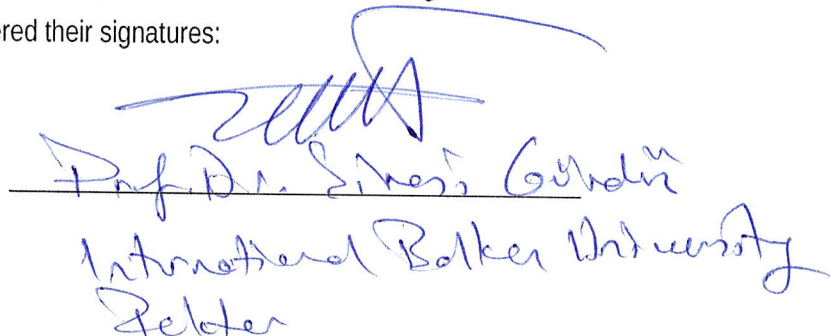 ered their signatures:
Prof. Dr. Sinasi Gündüz
International Balkan University
Rektor